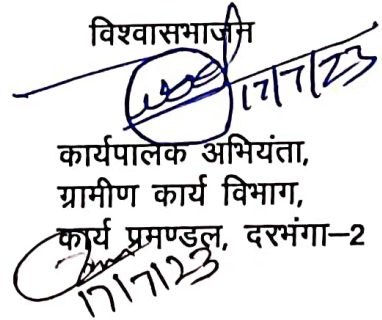 विश्वासभाजन
17/7/23
कार्यपालक अभियंता,
ग्रामीण कार्य विभाग,
कार्य प्रमण्डल, दरभंगा–2
17/7/23